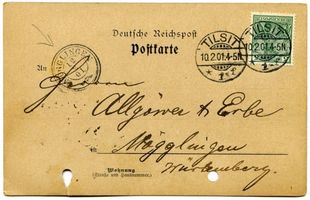 Deutsche Reichspost
Postkarte
TILSIT
10.2.01.4-5N.
TILSIT
10.2.01.4-5N.
An
Allgöwer & Erbe
Mögglingen
Württemberg.
Wohnung
(Straße und Hausnummer.)